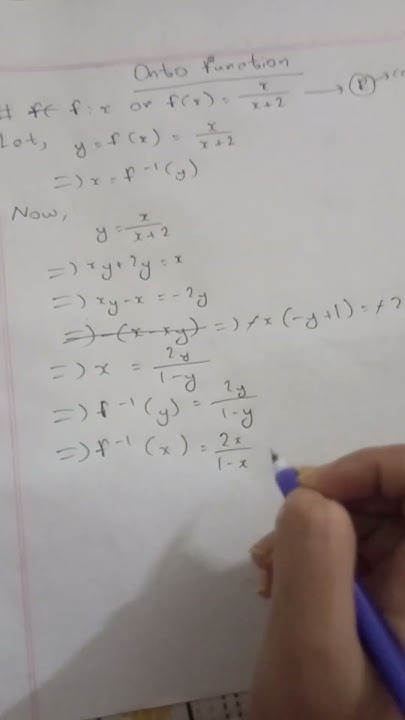 Onto function
# f: x or f(x) = x/x+2 → (P) →
Let, y = f(x) = x/x+2
=> x = f⁻¹(y)
Now,
y = x/x+2
=> xy + 2y = x
=> xy - x = -2y
=> -(x - xy) => -x(-y+1) = -2
=> x = 2y/1-y
=> f⁻¹(y) = 2y/1-y
=> f⁻¹(x) = 2x/1-x